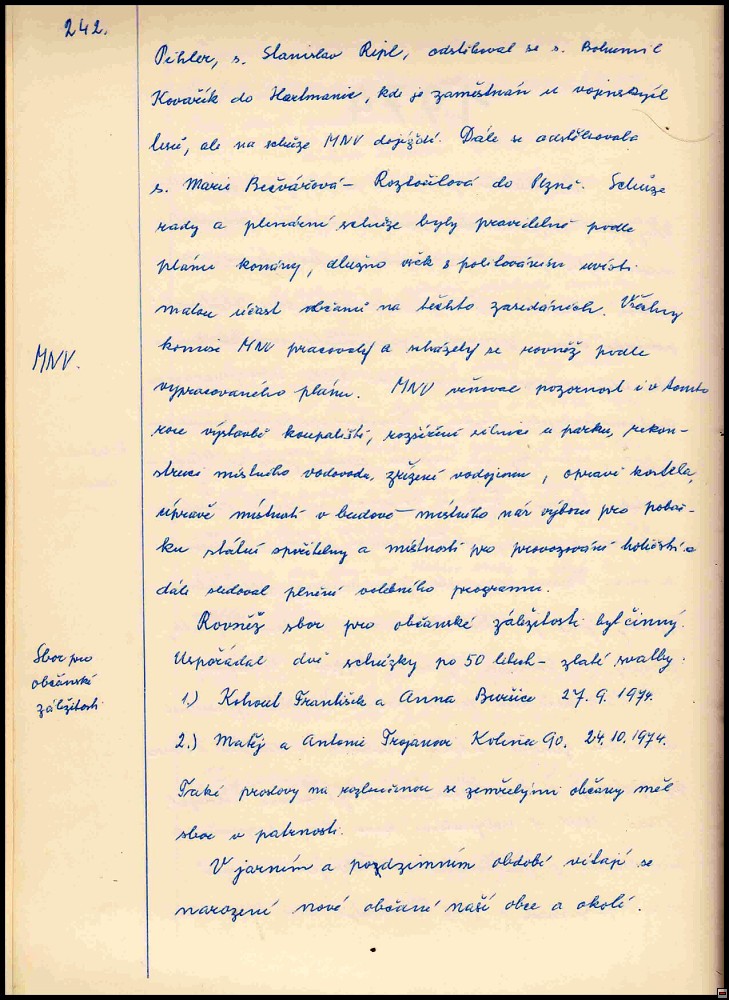 242.
Pihler, s. Stanislav Ripl, odstěhoval se s. Bohumil
Kovařík do Hartmanic, kde je zaměstnán u vojenských
lesů, ale na schůze MNV dojíždí. Dále se odstěhovala
s. Marie Bečvářová - Roztočilová do Plzně. Schůze
rady a plenární schůze byly pravidelně podle
plánu konány, dlužno však s politováním uvésti
malou účast občanů na těchto zasedáních. Všechny
MNV.
komise MNV pracovaly a scházely se rovněž podle
vypracovaného plánu. MNV věnoval pozornost i v tomto
roce výstavbě koupaliště, rozšíření silnice u parku, rekon-
strukci místního vodovodu, zřízení vodojemu, opravě kostela,
úpravě místností v budově místního nár. výboru pro poboč-
ku státní spořitelny a místností pro provozování holičství a
dále sledoval plnění volebního programu.
Rovněž sbor pro občanské záležitosti byl činný.
Sbor pro
občanské
záležitosti
Uspořádal dvě schůzky po 50 letech - zlaté svatby:
1.) Kohout František a Anna 27. 9. 1974.
2.) Matěj a Antonie Trojanovi Kolinec 90. 24. 10. 1974.
Také proslovy na rozloučenou se zemřelými občany měl
sbor v patrnosti.
V jarním a podzimním období vítají se
narození noví občané naší obce a okolí.